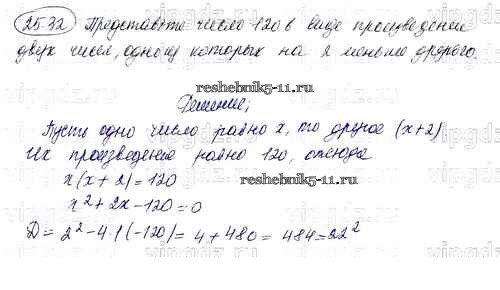 25.32 Представьте число 120 в виде произведения
двух чисел, одно из которых на 2 меньше другого.
reshebnik5-11.ru
Решение;
Пусть одно число равно x, то другое (x+2)
Их произведение равно 120, отсюда
x(x+2)=120
reshebnik5-11.ru
x²+2x-120=0
D=2²-4·1(-120)=4+480=484=22²